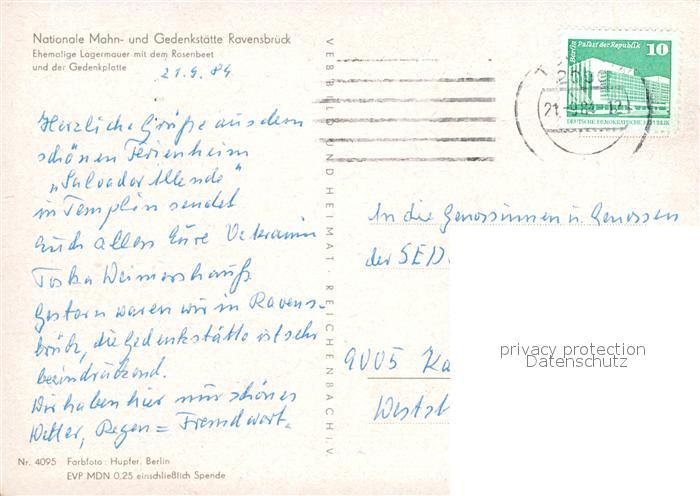 Nationale Mahn- und Gedenkstätte Ravensbrück
Ehemalige Lagermauer mit dem Rosenbeet
und der Gedenkplatte
21.9.84
Herzliche Grüße aus dem
schönen Ferienheim
"Salvador Allende"
in Templin sendet
Euch allen Eure Veteranin
Toska
Gestern waren wir in Ravens-
brück, die Gedenkstätte ist sehr
beeindruckend.
Wir haben hier nur schönes
Wetter, Regen = Fremdwort.
Nr. 4095 Farbfoto: Hupfer, Berlin
EVP MDN 0,25 einschließlich Spende
VEB BILD UND HEIMAT · REICHENBACH I. V.
Berlin Palast der Republik
10
DEUTSCHE DEMOKRATISCHE REPUBLIK
An die Genossinnen u. Genossen
der SED
9005 Ka
privacy protection
Datenschutz